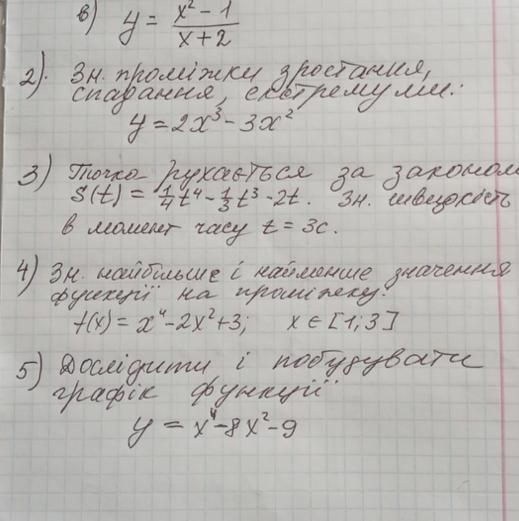 в) y = (x² - 1)/(x + 2)
2). Зн. проміжки зростання,
спадання, екстремуми:
y = 2x³ - 3x²
3) Точка рухається за законом
S(t) = 1/4 t⁴ - 1/3 t³ - 2t. Зн. швидкість
в момент часу t = 3c.
4) Зн. найбільше і найменше значення
функції на проміжку:
f(x) = x⁴ - 2x² + 3; x ∈ [1; 3]
5) Дослідити і побудувати
графік функції
y = x⁴ - 8x² - 9